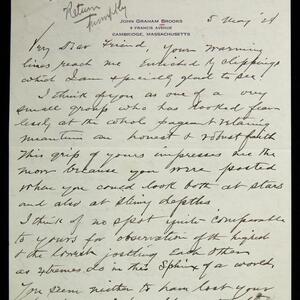 Return
promptly
JOHN GRAHAM BROOKS
8 FRANCIS AVENUE
CAMBRIDGE, MASSACHUSETTS
5 May '21
Very Dear Friend, your warming
lines reach me enriched by clippings
which I am specially glad to see.
I think of you as one of a very
small group who has looked fear-
lessly at the whole pageant retaining
meantime an honest & robust faith
This grip of yours impresses me the
more because you were posted
where you could look both at stars
and also at slimy depths
I think of no spot quite comparable
to yours for observation of the highest
& the lowest jostling each other
as in this Sphinx of a world.
You seem neither to have lost your